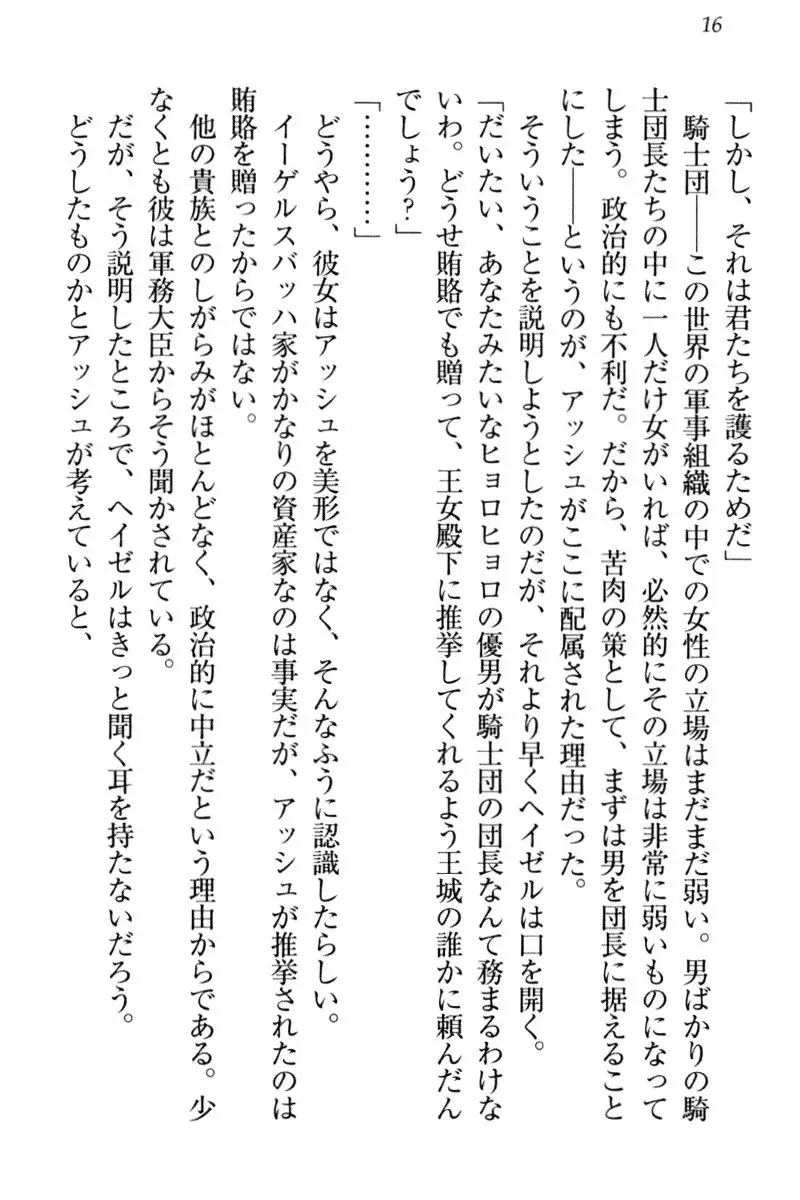 16
「しかし、それは君たちを護るためだ」
騎士団――この世界の軍事組織の中での女性の立場はまだまだ弱い。男ばかりの騎
士団長たちの中に一人だけ女がいれば、必然的にその立場は非常に弱いものになって
しまう。政治的にも不利だ。だから、苦肉の策として、まずは男を団長に据えること
にした――というのが、アッシュがここに配属された理由だった。
そういうことを説明しようとしたのだが、それより早くヘイゼルは口を開く。
「だいたい、あなたみたいなヒョロヒョロの優男が騎士団の団長なんて務まるわけな
いわ。どうせ賄賂でも贈って、王女殿下に推挙してくれるよう王城の誰かに頼んだん
でしょう？」
「…………」
どうやら、彼女はアッシュを美形ではなく、そんなふうに認識したらしい。
イーゲルスバッハ家がかなりの資産家なのは事実だが、アッシュが推挙されたのは
賄賂を贈ったからではない。
他の貴族とのしがらみがほとんどなく、政治的に中立だという理由からである。少
なくとも彼は軍務大臣からそう聞かされている。
だが、そう説明したところで、ヘイゼルはきっと聞く耳を持たないだろう。
どうしたものかとアッシュが考えていると、